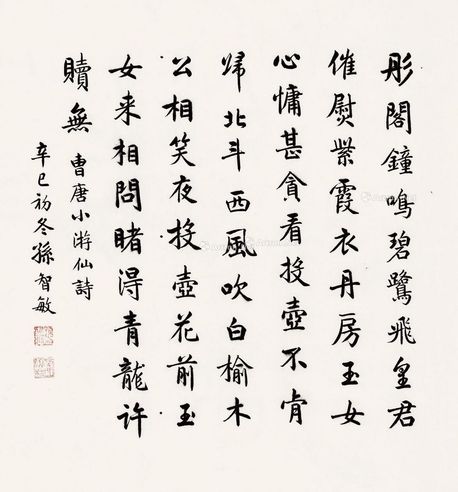 彤閣鐘鳴碧鷺飛皇君
催熨紫霞衣丹房玉女
心慵甚貪看投壺不肯
歸北斗西風吹白榆木
公相笑夜投壺花前玉
女来相問賭得青龍许
贖無
曹唐小游仙詩
辛巳初冬孫智敏